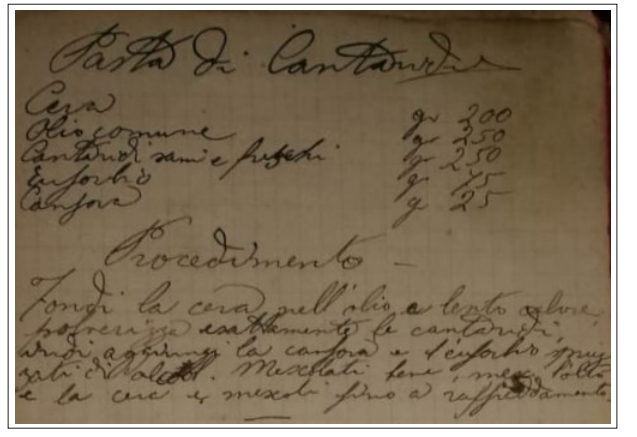 Pasta di Cantaridi
Cera gr 200
Olio comune gr 250
Cantaridi sani e freschi g 250
Euforbio g 75
Canfora g 25
Procedimento -
Fondi la cera nell'olio a lento calore,
polverizza esattamente le cantaridi,
indi aggiungi la canfora e l'euforbio spruz
zati di alcool. Mescolati bene, l'olio
e la cera e mescoli fino a raffreddamento.